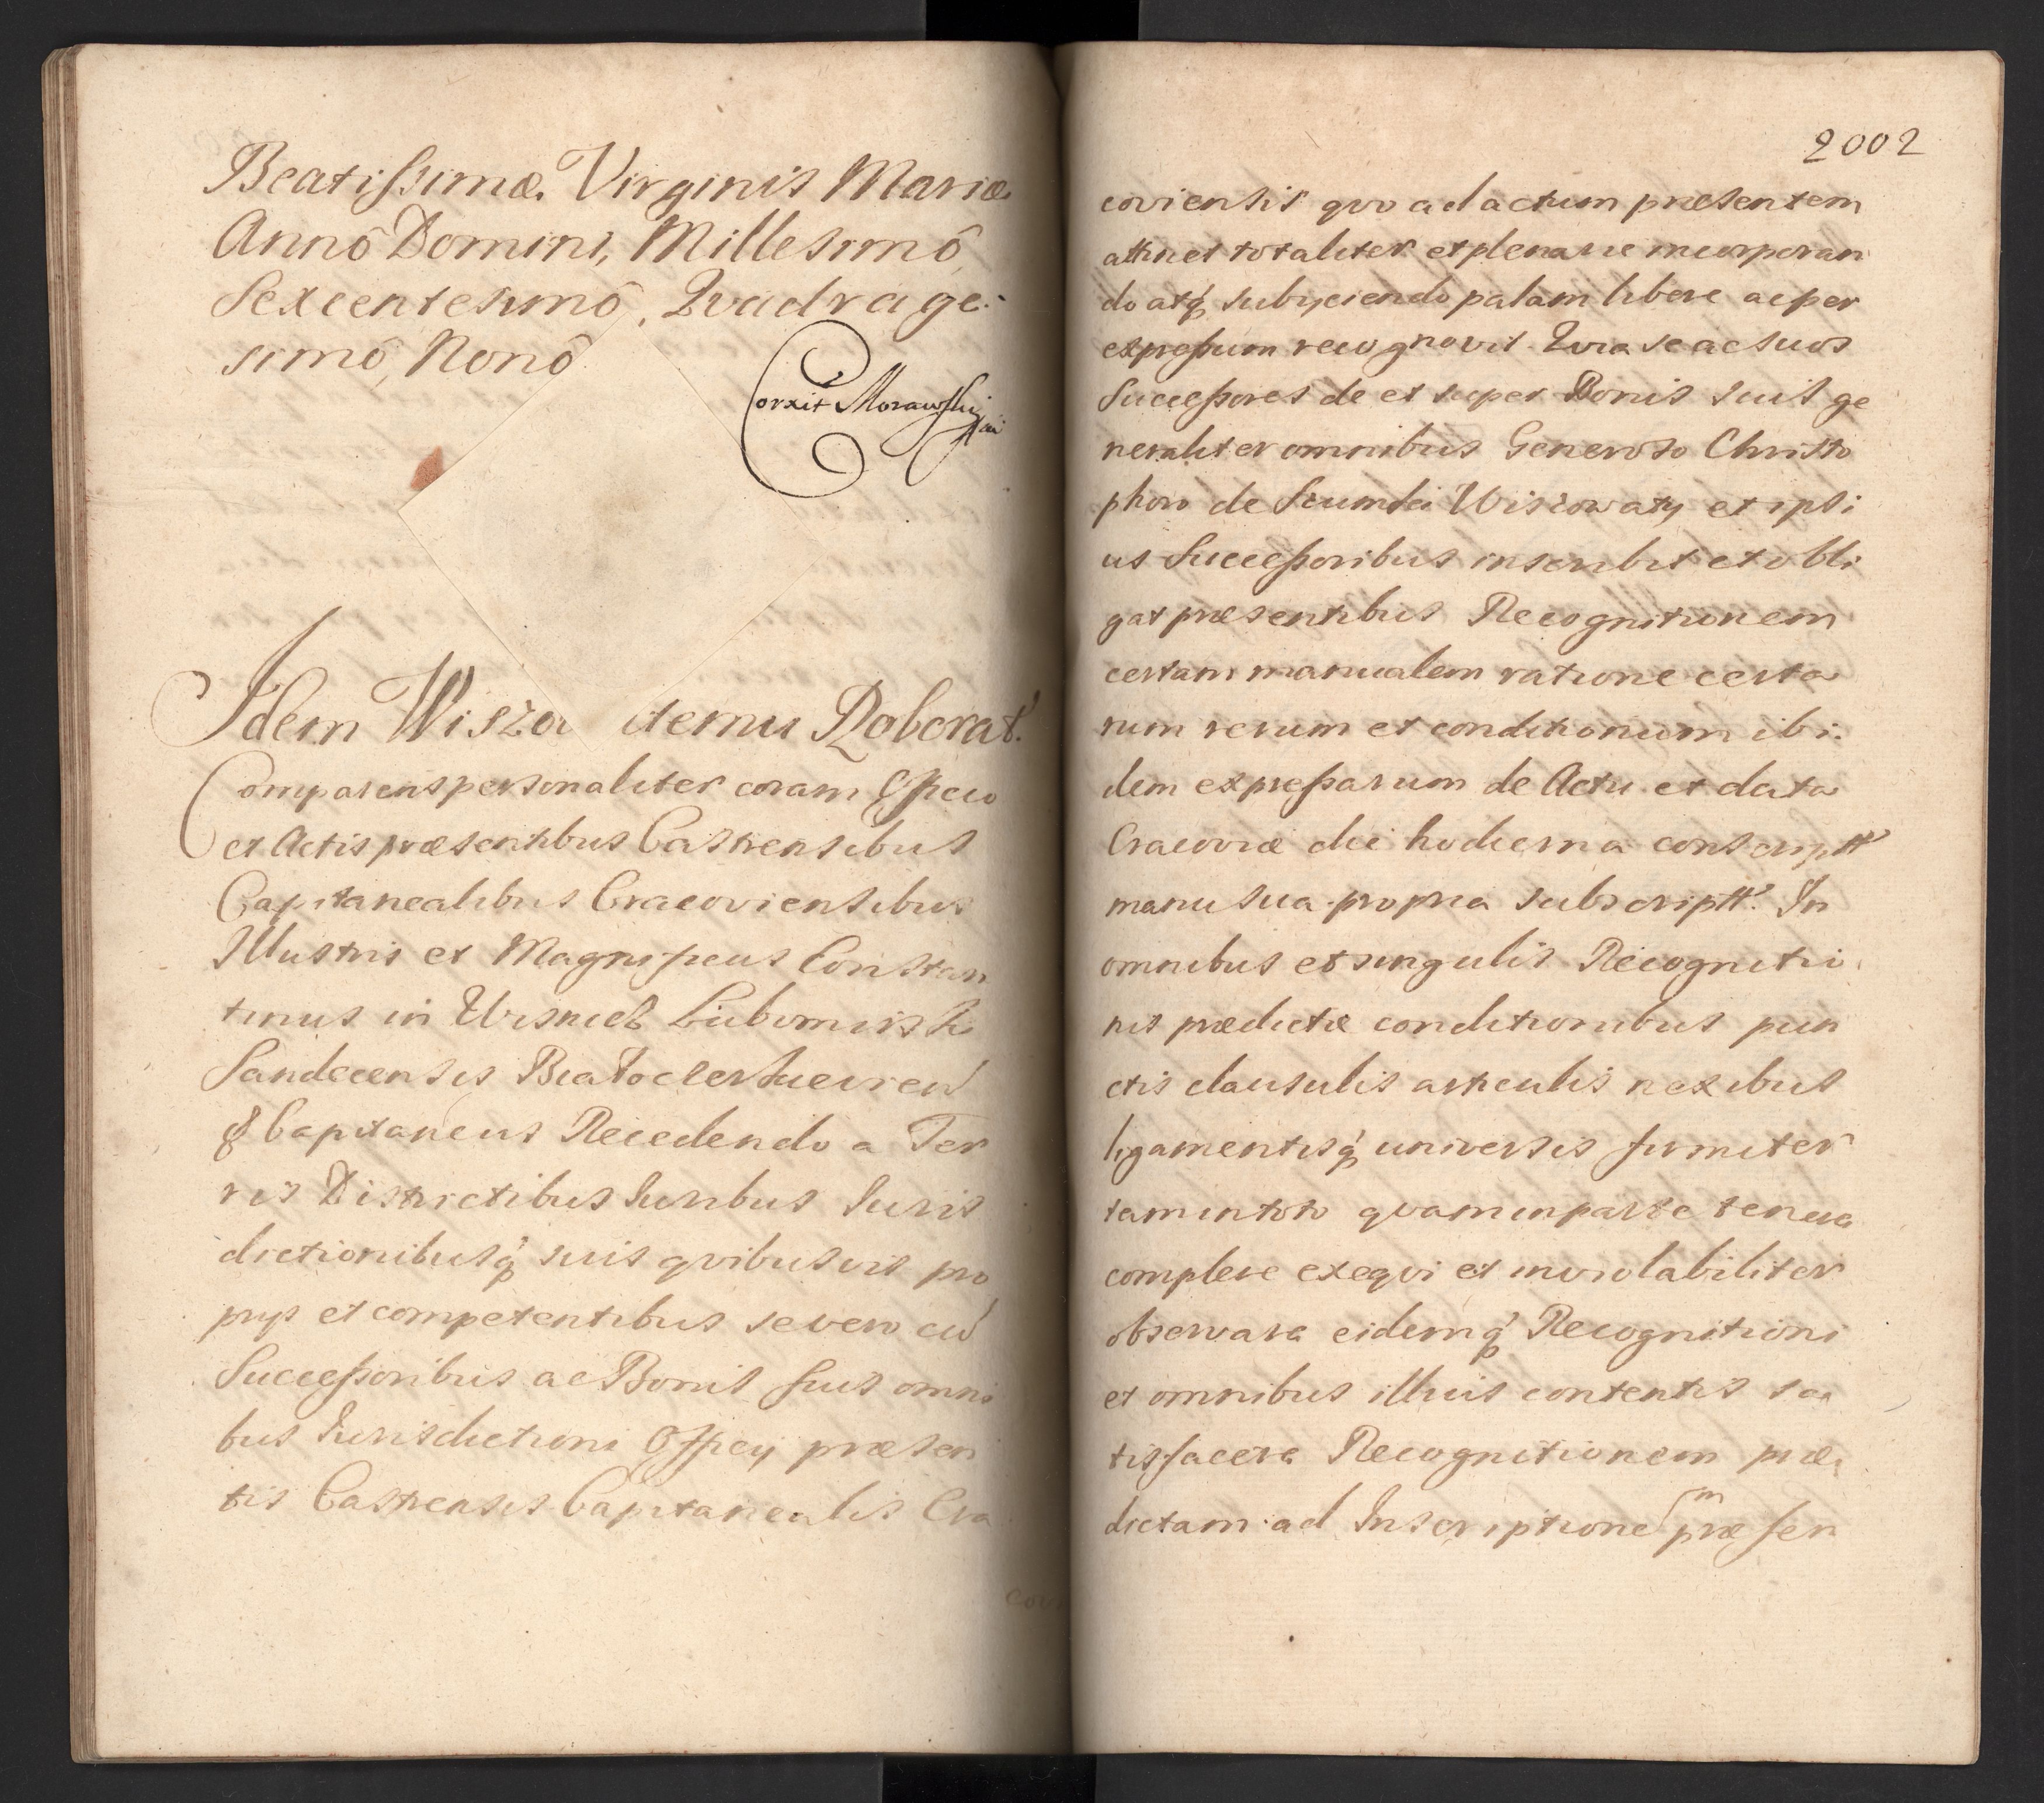 Beatissimæ Virginis Mariæ
Annô Domini, Millesimô
Sexcentesimô, Quadrage:
simô, Nonô
Corxit Morawski
Idem Wiszo itemu Roborat.
Comparens personaliter coram Officio
et Actis præsentibus Castrensibus
Capitanealibus Cracoviensibus
Illustris et Magnificus Constan
tinus in Wisnicz Lubomirski
Sandecensis
Capitaneus Recedendo a Ter
ris Districtibus Iuribus Iuris
dictionibusq́ suis qvibusvis pro
prijs et competentibus se vero cū
Successoribus ac Bonis suis omni
bus Iurisdictioni Officij præsen
tis Castrensis Capitanealis Cra
2002
coviensis qvo ad actum præsentem
attinet totaliter et plenarie incorporan
do atq́ subijciendo palam libere ac per
expressum recognovit. Qvia se ac suos
Successores de et super Bonis suis ge
neraliter omnibus Generoso Christo
phoro de Szumsko Wiszowaty et ipsi
us Successoribus inscribit et obli
gat præsentibus Recognitionem
certam manualem ratione certa
rum rerum et conditionum ibi:
dem expressarum de Actu et data
Cracoviæ die hodierna conscriptt
manu sua propria subscriptt. In
omnibus et singulis Recognitio
nis prædictæ conditionibus pun
ctis clausulis articulis nexibus
ligamentisq́ universis firmiter
tam in toto qvam in parte tenere
complere exeqvi et inviolabiliter
observare eidemq́ Recognitioni
et omnibus illius contentis sa
tisfacere Recognitionem præ
dictam ad Inscriptionem præsen